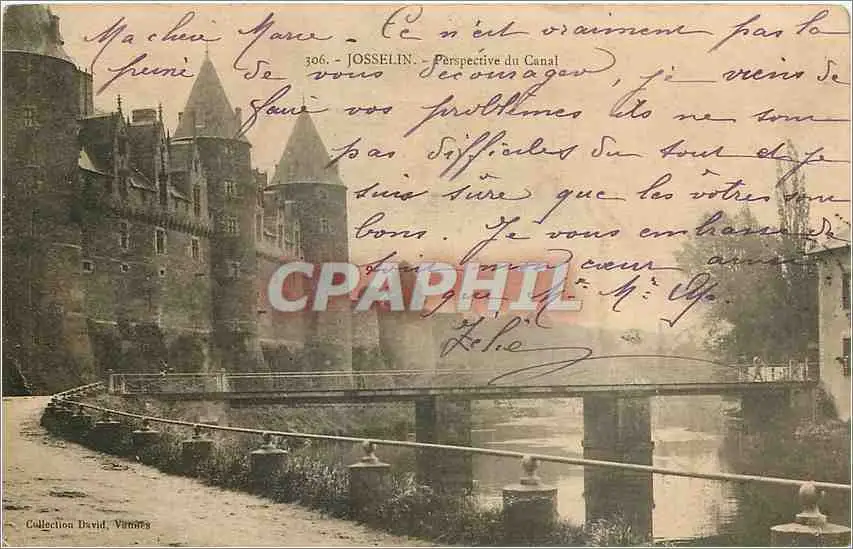 Ma chère Marie - Ce n'est vraiment pas la
306. - JOSSELIN. - Perspective du Canal
peine de vous décourager, je viens de
faire vos problèmes ils ne sont
pas difficiles du tout et je
suis sûre que les vôtres sont
bons. Je vous embrasse de
tout mon cœur ainsi
que Mr Me
CPAPHIL
Zélie
Collection David, Vannes